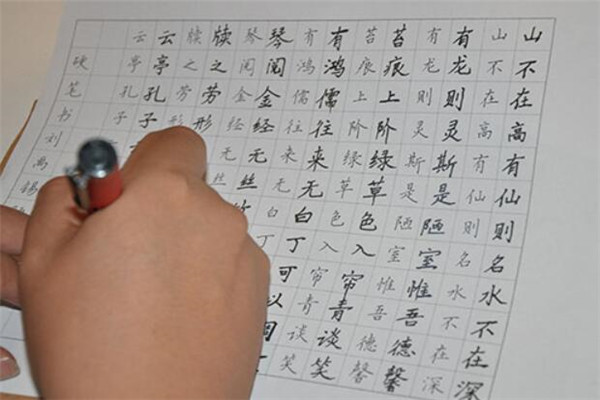 山不在高有仙则名水不在深
山不在高有仙则名水不在深
有龙则灵斯是陋室惟吾德馨
有龙则灵斯是陋室惟吾德馨
苔痕上阶绿草色入帘青谈笑
苔痕上阶绿草色入帘青谈笑
有鸿儒往来无白丁可以调
有鸿儒往来无白丁
琴阅金经无丝竹
琴阅金经无丝
牍之劳形
牍之劳形
云亭孔子
云亭孔子
硬笔书刘禹锡